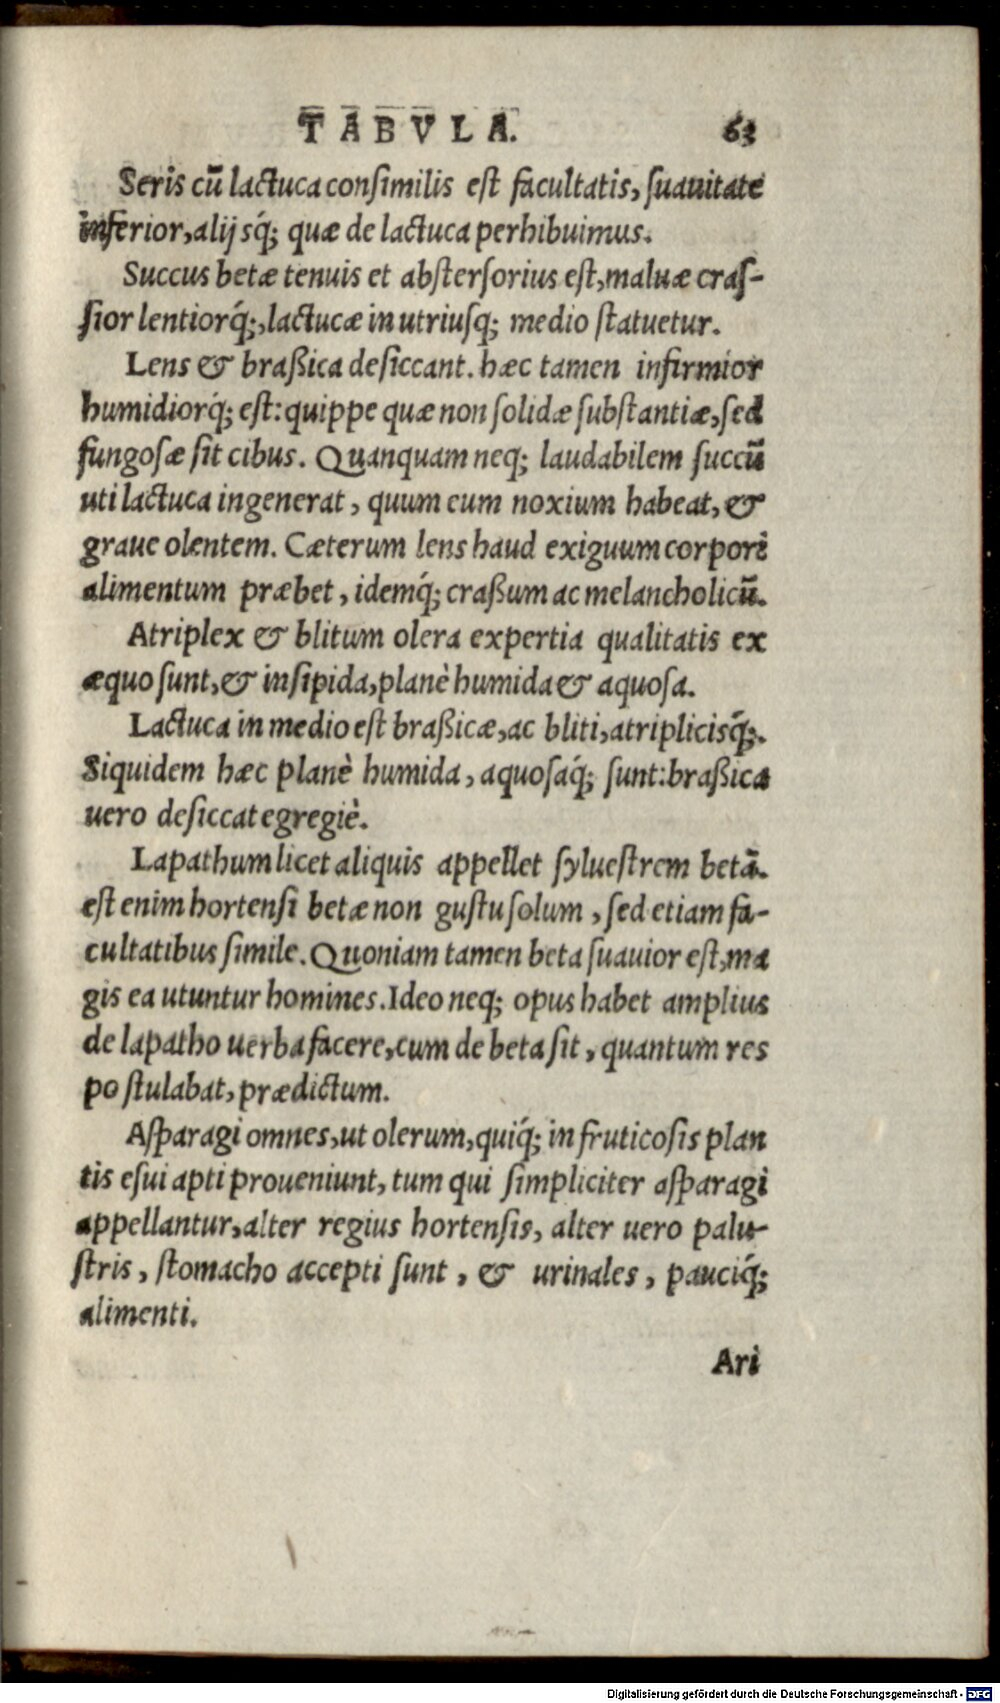 TABVLA. 63
Seris cū lactuca consimilis est facultatis, suauitate
inferior, alijsq́; quæ de lactuca perhibuimus.
Succus betæ tenuis et abstersorius est, maluæ cras-
sior lentiorq́;, lactucæ in utriusq; medio statuetur.
Lens & braßica desiccant. hæc tamen infirmior
humidiorq́; est: quippe quæ non solidæ substantiæ, sed
fungosæ sit cibus. Quanquam neq; laudabilem succū
uti lactuca ingenerat, quum eum noxium habeat, &
graue olentem. Cæterum lens haud exiguum corpori
alimentum præbet, idemq́; craßum ac melancholicū.
Atriplex & blitum olera expertia qualitatis ex
æquo sunt, & insipida, planè humida & aquosa.
Lactuca in medio est braßicæ, ac bliti, atriplicisq́;.
Siquidem hæc planè humida, aquosaq́; sunt: braßica
uero desiccat egregiè.
Lapathum licet aliquis appellet syluestrem betā.
est enim hortensi betæ non gustu solum, sed etiam fa-
cultatibus simile. Quoniam tamen beta suauior est, ma
gis ea utuntur homines. Ideo neq; opus habet amplius
de lapatho uerba facere, cum de beta sit, quantum res
postulabat, prædictum.
Asparagi omnes, ut olerum, quiq́; in fruticosis plan
tis esui apti proueniunt, tum qui simpliciter asparagi
appellantur, alter regius hortensis, alter uero palu-
stris, stomacho accepti sunt, & urinales, pauciq́;
alimenti.
Ari
Digitalisierung gefördert durch die Deutsche Forschungsgemeinschaft - DFG